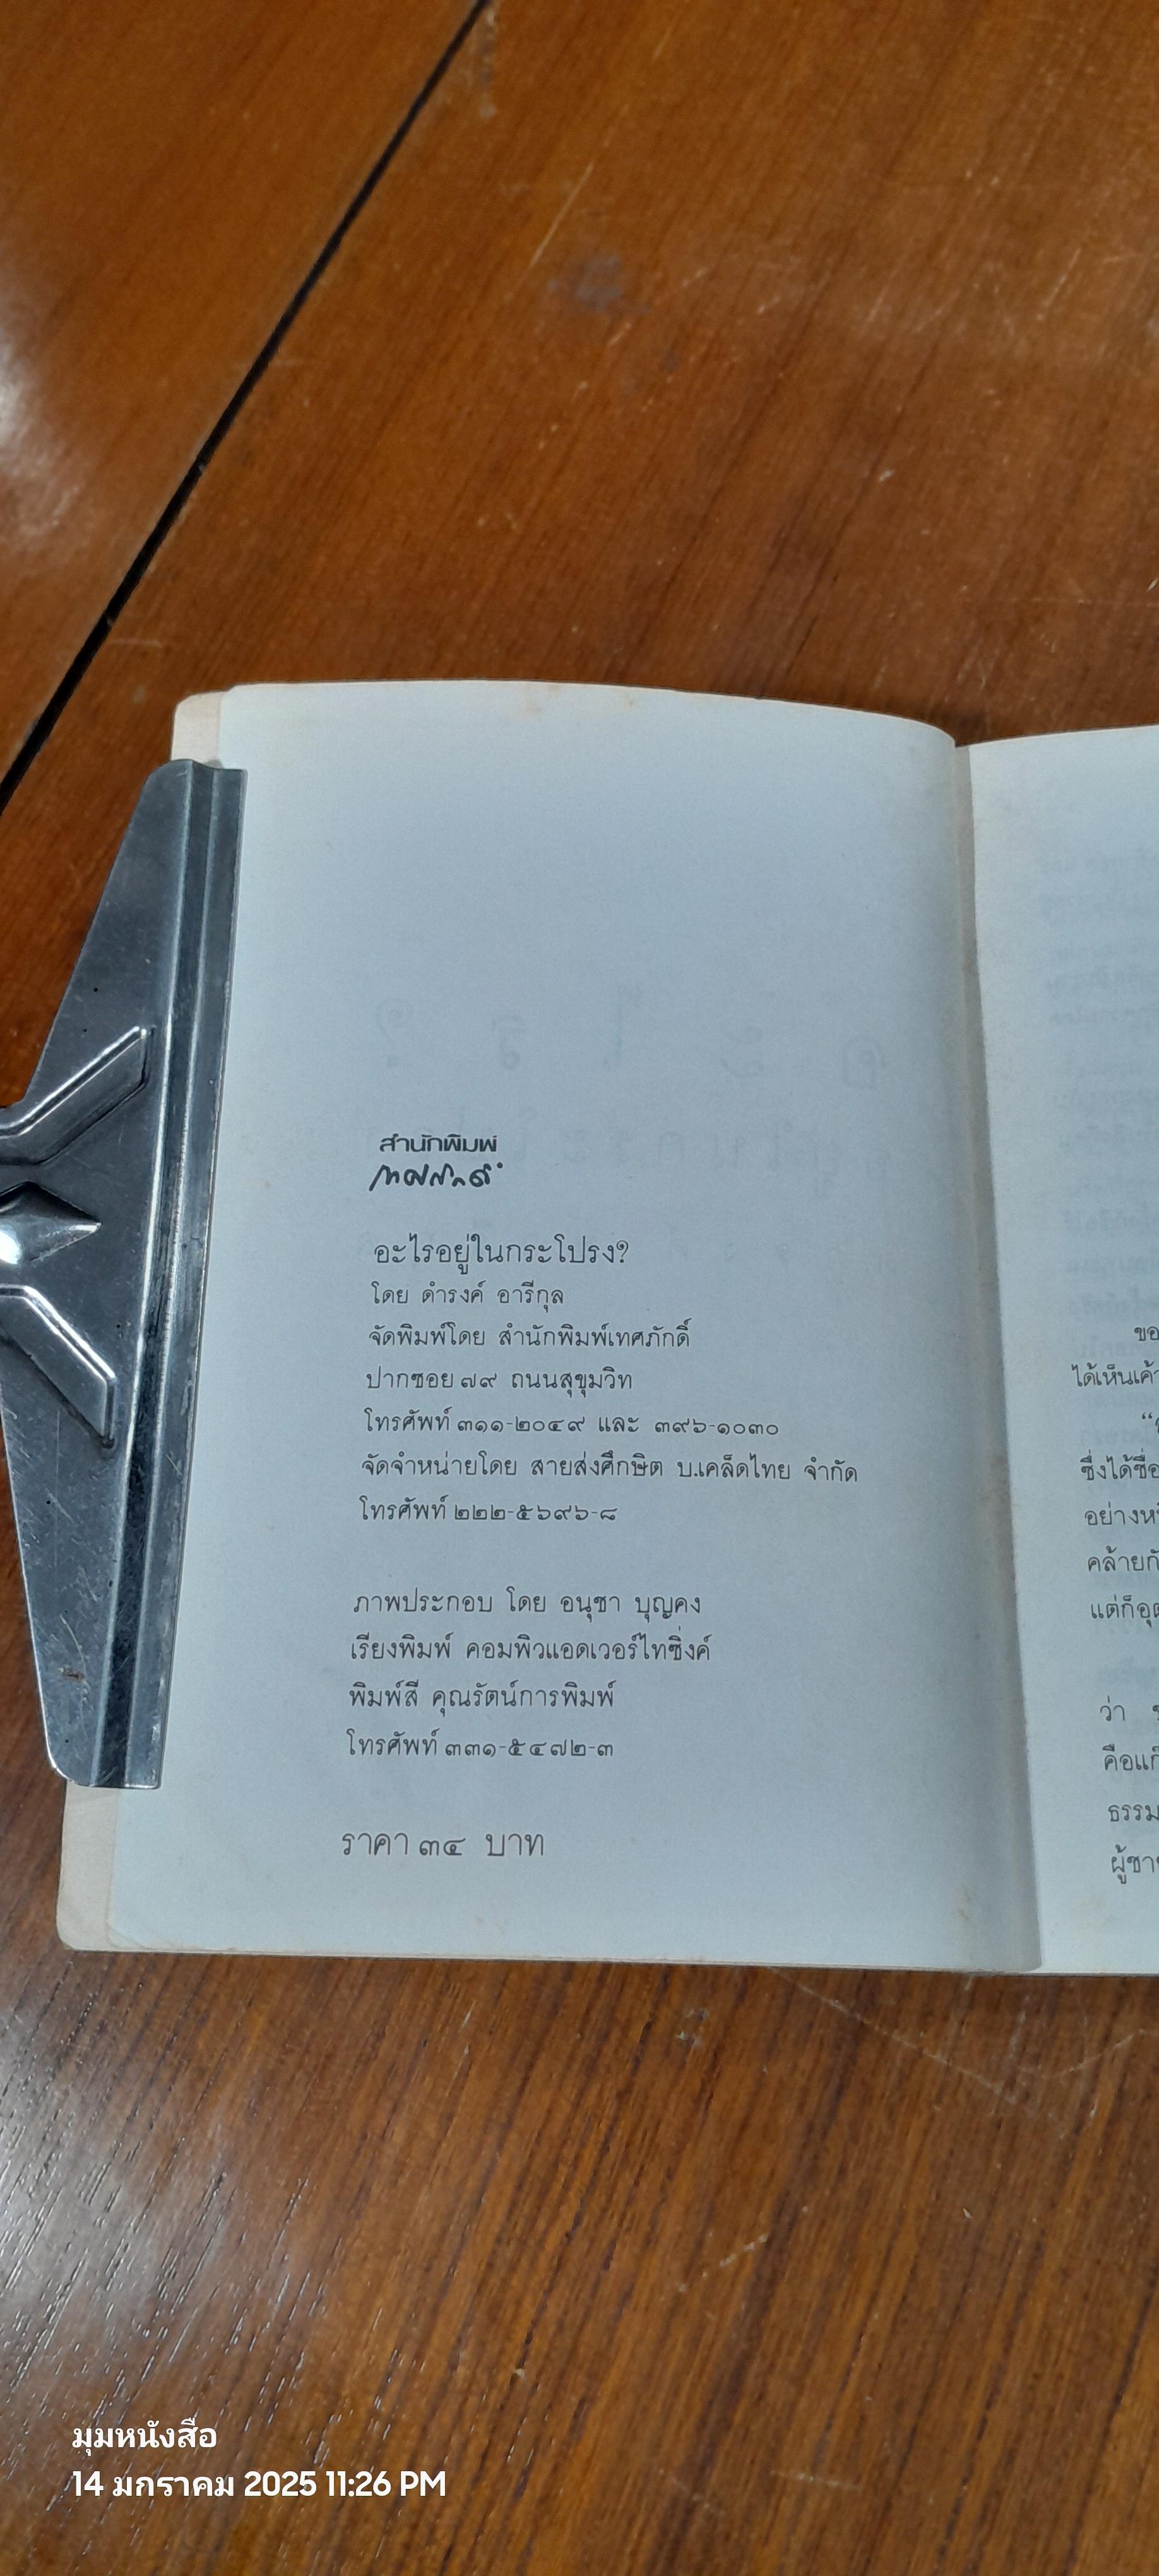 สำนักพิมพ์
อะไรอยู่ในกระโปรง?
โดย ดำรงค์ อารีกุล
จัดพิมพ์โดย สำนักพิมพ์เทศภักดิ์
ปากซอย ๗๙ ถนนสุขุมวิท
โทรศัพท์ ๓๑๑-๒๐๔๙ และ ๓๙๖-๑๐๓๐
จัดจำหน่ายโดย สายส่งศึกษิต บ.เคล็ดไทย จำกัด
โทรศัพท์ ๒๒๒-๕๖๙๖-๘
ภาพประกอบ โดย อนุชา บุญคง
เรียงพิมพ์ คอมพิวแอดเวอร์ไทซิ่งค์
พิมพ์สี คุณรัตน์การพิมพ์
โทรศัพท์ ๓๓๑-๕๔๗๒-๓
ราคา ๓๔ บาท
ขอ
ได้เห็นเค้า
ซึ่งได้ชื่อ
อย่างห
คล้ายกั
แต่ก็อุ
ว่า
คือแก๊
ธรรม
ผู้ชา
มุมหนังสือ
14 มกราคม 2025 11:26 PM